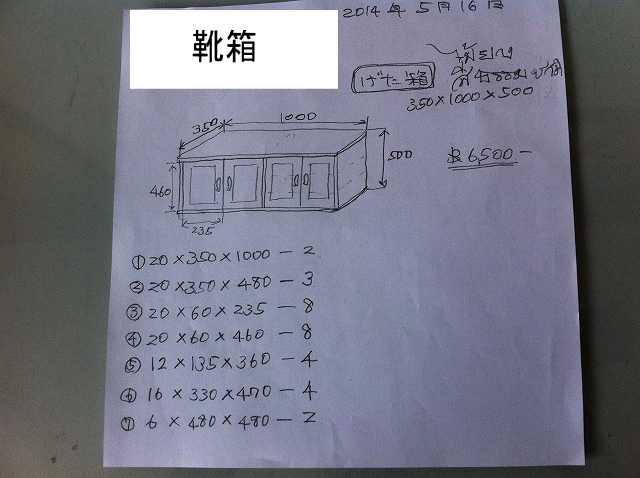 2014年5月16日
靴箱
げた箱
350×1000×500
฿6,500-
350
1000
500
460
235
① 20×350×1000-2
② 20×350×480-3
③ 20×60×235-8
④ 20×60×460-8
⑤ 12×135×360-4
⑥ 16×330×470-4
⑦ 6×480×480-2